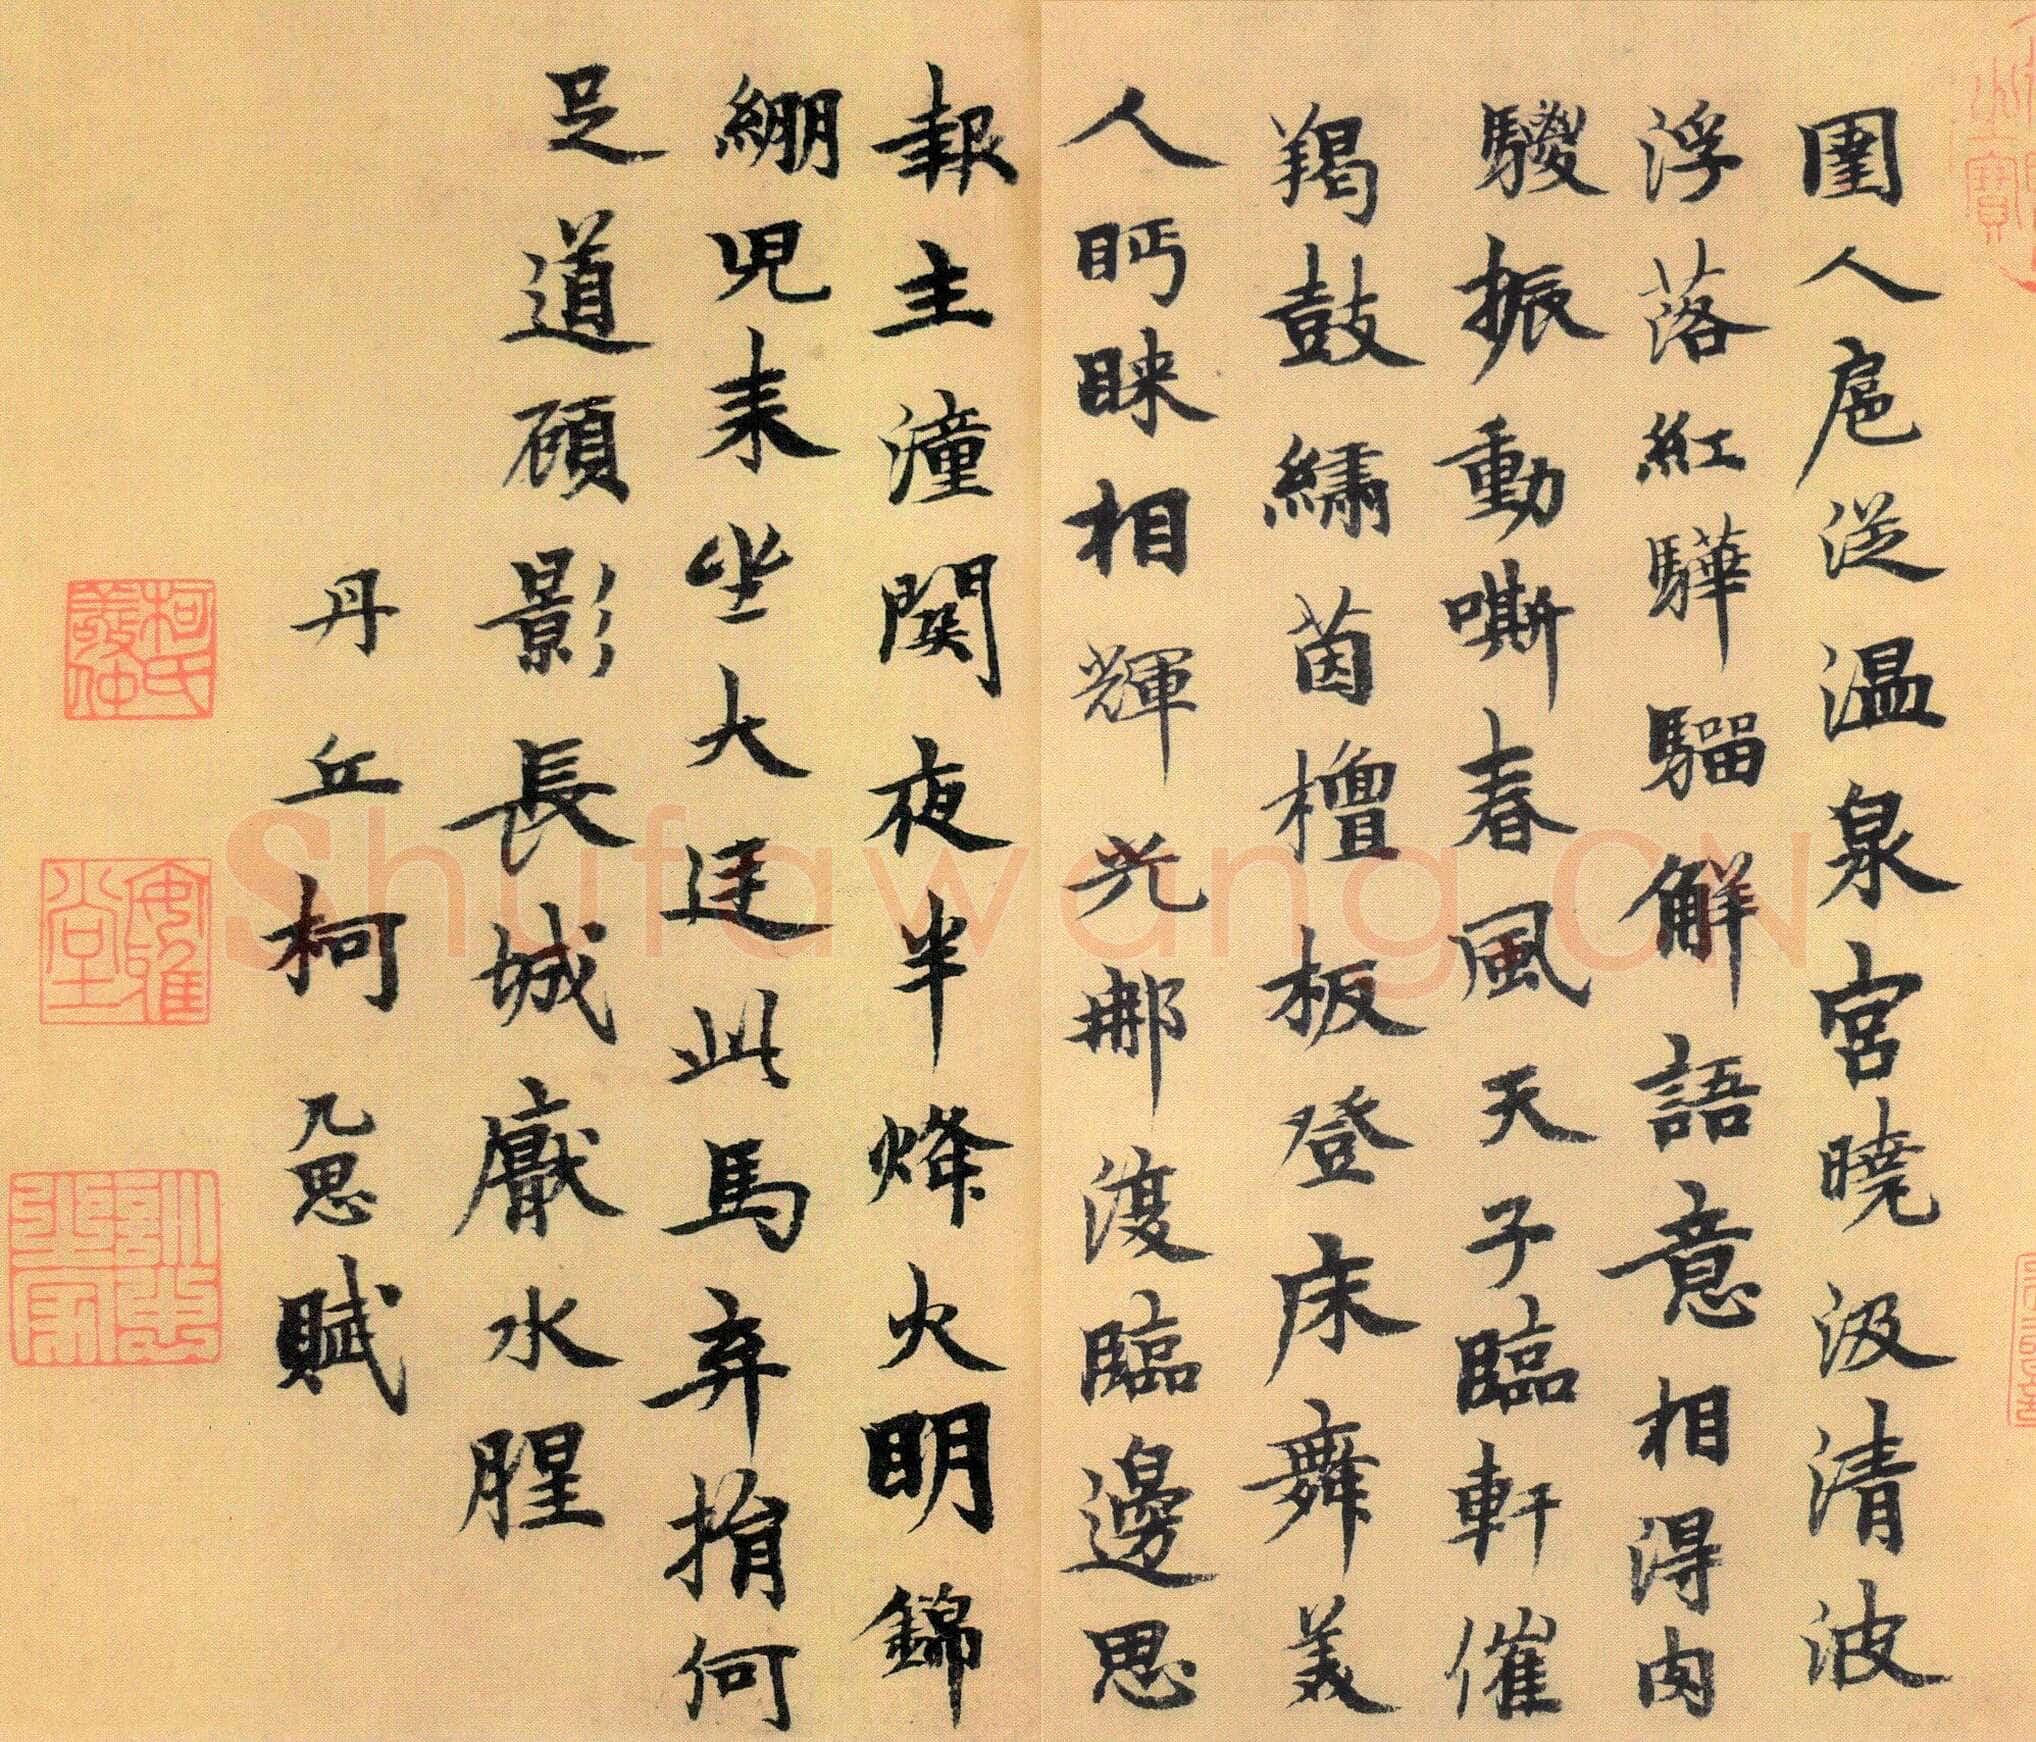 圉人扈從温泉宫曉汲清波
浮落紅驊騮解語意相得肉
騣振動嘶春風天子臨軒催
羯鼓繡茵檀板登床舞美
人眄睞相輝光挪復臨邊思
報主潼関夜半烽火明錦
綳児来坐大廷此馬弃捐何
足道碩影長城猒水腥
丹丘柯九思賦
柯氏敬仲
安雅堂
訓忠之家
Shufawang.CN